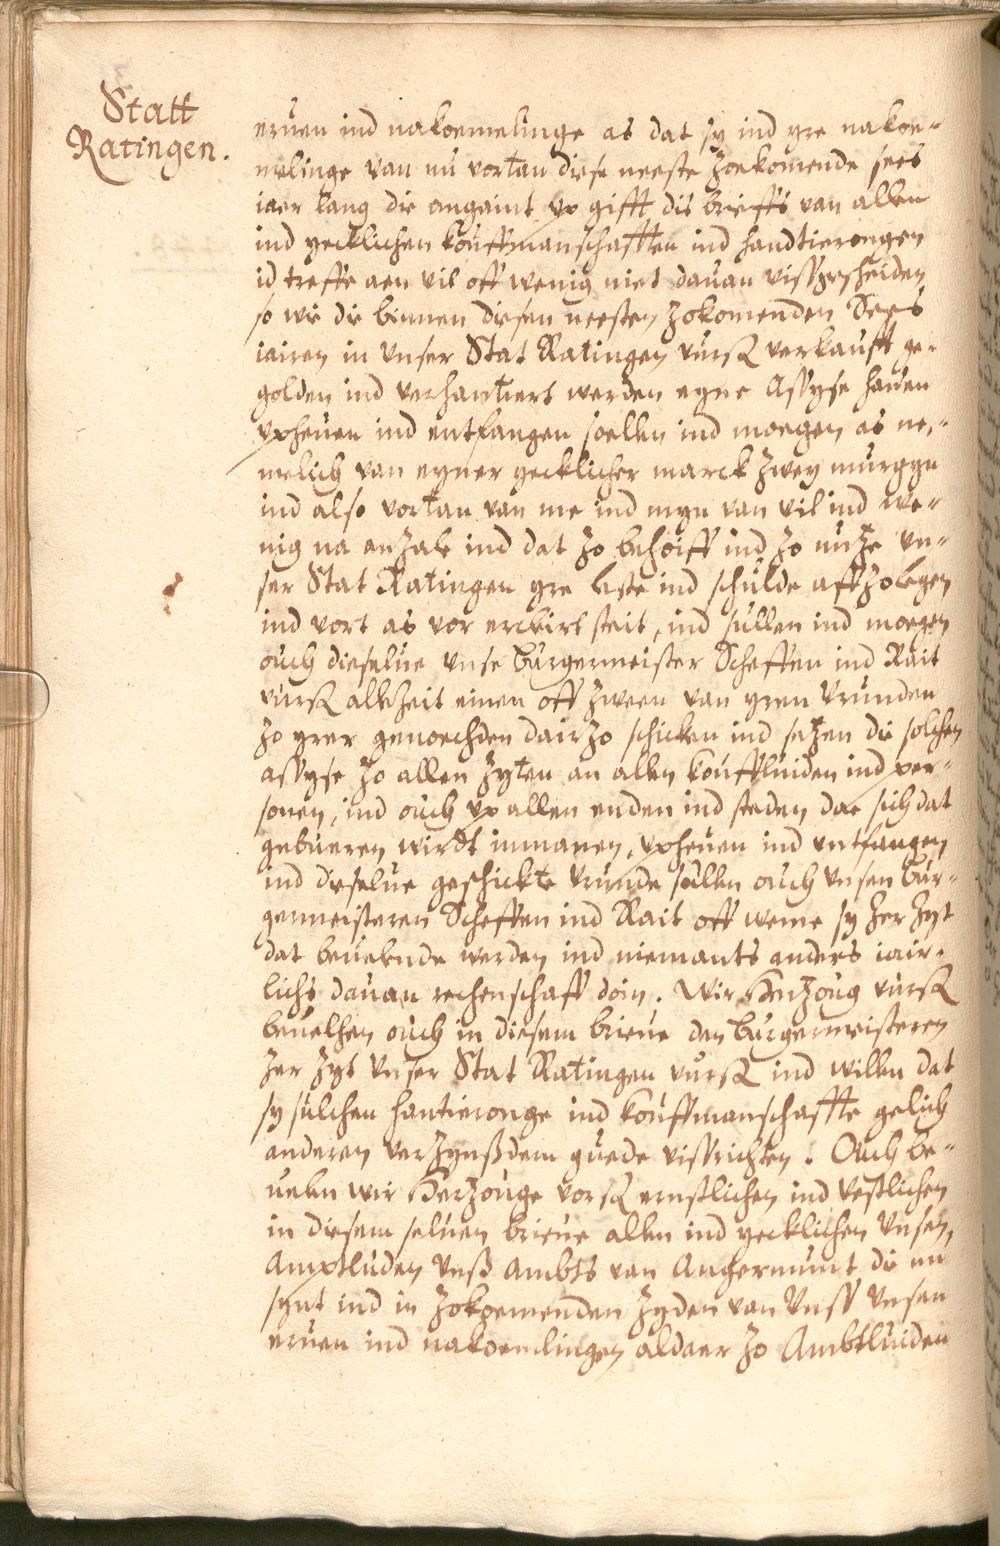 Statt
Ratingen.
eruen ind nakoemelinge as dat sy ind yre nakoe-
melinge van nu vortan diese neeste zoekomende sees
iaer lang die angaint up gifft dis brieffs van allen
ind yecklichen kouffmanschafften ind handtierongen
id treffe aen vil off wenig niet dauan vissgescheiden
so wie die binnen diesen neesten zokomenden Sees
iairen in Unser Stat Ratingen vurß verkaufft ge-
golden ind verhantiert werden eyne Assyse hauen
upheuen ind entfangen soellen ind moegen as ne-
melich van eyner yecklicher marck zwey murgyn
ind also vortan van me ind myn van vil ind we-
nig na anzale ind dat zo behoiff ind zo nutze Un-
ser Stat Ratingen yre laste ind schulde affzolegen
ind vort as vor ercleirt steit, ind sullen ind moegen
ouch dieselue Unse burgermeister Scheffen ind Rait
vurß allezeit einen off zween van yren Vrunden
zo yrer genoechden dairzo schicken ind setzen die solchen
assyse zo allen zyten an allen kouffluiden ind per-
sonen, ind ouch up allen enden ind steden dae sich dat
gebueren wirdt inmanen, upheuen ind untfangen
ind dieselue geschickte Vrunde sullen ouch Unsen bur-
germeisteren Scheffen ind Rait off weme sy zer zyt
dat beuelende werden ind niemants anders iair-
lichs dauan rechenschaff doin. Wir Hertzoug vurß
beuelhen ouch in diesem brieue den burgermeisteren
zer zyt Unser Stat Ratingen vurß ind willen dat
sy sulchen hantieronge ind kouffmanschaffte gelich
anderen verzynßdem guede vissrichten. Ouch be-
uelen wir Hertzouge vorß ernstlichen ind vestlichen
in diesem seluen brieue allen ind yecklichen Unsen
Amptluden Unß Ambts van Angermunt die nu
synt ind in zokoemenden zyden van Unss Unsen
eruen ind nakoemlingen aldaer zo Ambtluiden